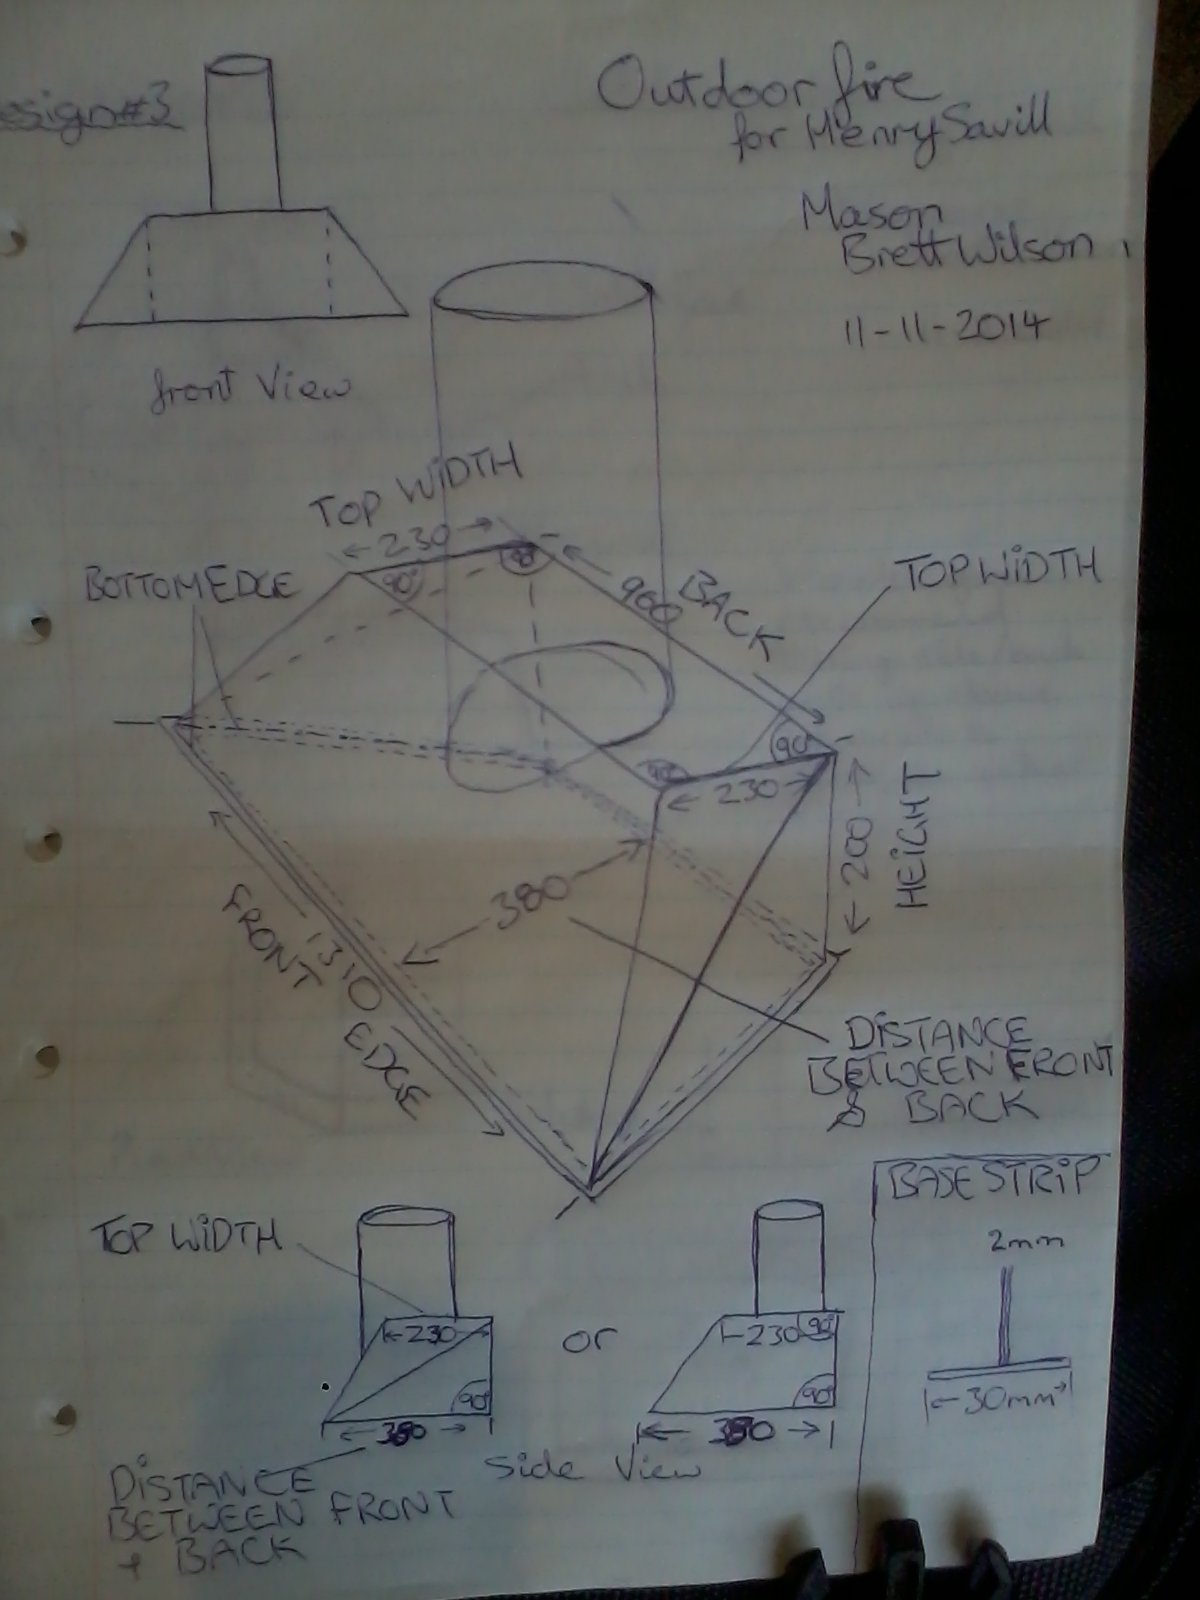 esign#3
Outdoor fire
for Henry Savill
Mason
Brett Wilson
11-11-2014
front View
TOP WIDTH
230
90°
90°
BOTTOM EDGE
960
BACK
TOP WIDTH
90
90
230
200
HEIGHT
380
FRONT
1310
EDGE
DISTANCE
BETWEEN FRONT
& BACK
BASE STRIP
2mm
30mm
TOP WIDTH
230
90°
380
or
230
90°
90°
380
Side View
DISTANCE
BETWEEN FRONT
+ BACK